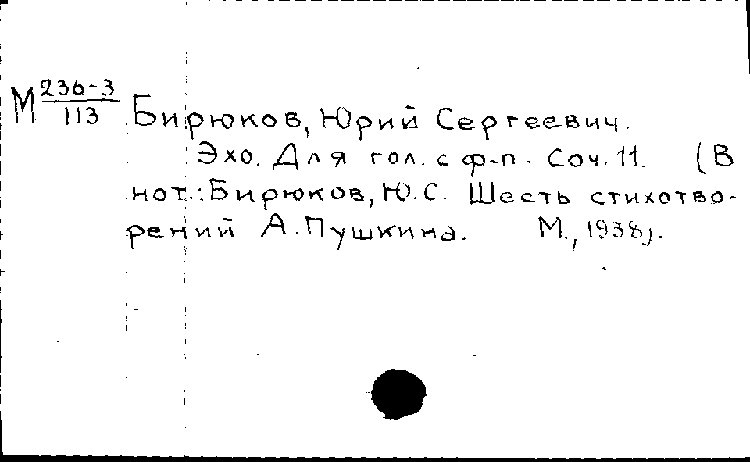 М 236-3/113 Бирюков, Юрий Сергеевич.
Эхо. Для гол. с ф-п. Соч. 11. (В
нот.: Бирюков, Ю.С. Шесть стихотво-
рений А. Пушкина. М., 1938).